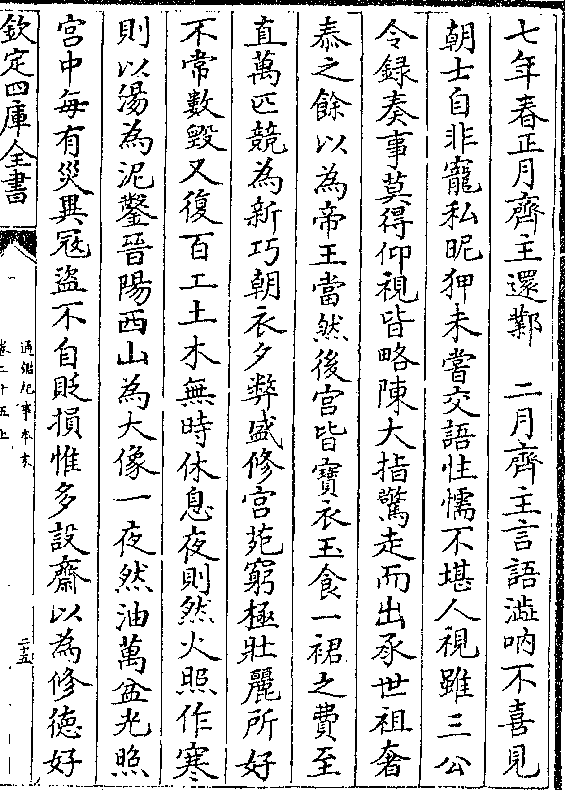 七年春正月齊主還鄴　二月齊主言語澁吶不喜見
朝士自非寵私昵狎未嘗交語性懦不堪人視雖三公
令録奏事莫得仰視皆略陳大指驚走而出承世祖奢
泰之餘以為帝王當然後宫皆寶衣玉食一裙之費至
直萬匹競為新巧朝衣夕弊盛修宫苑窮極壯麗所好
不常數毀又復百工土木無時休息夜則然火照作寒
則以湯為泥鑿晉陽西山為大像一夜然油萬盆光照
宫中每有災異寇盜不自貶損惟多設齋以為修德好
欽定四庫全書
通鑑紀事本末
卷二十五上
二五